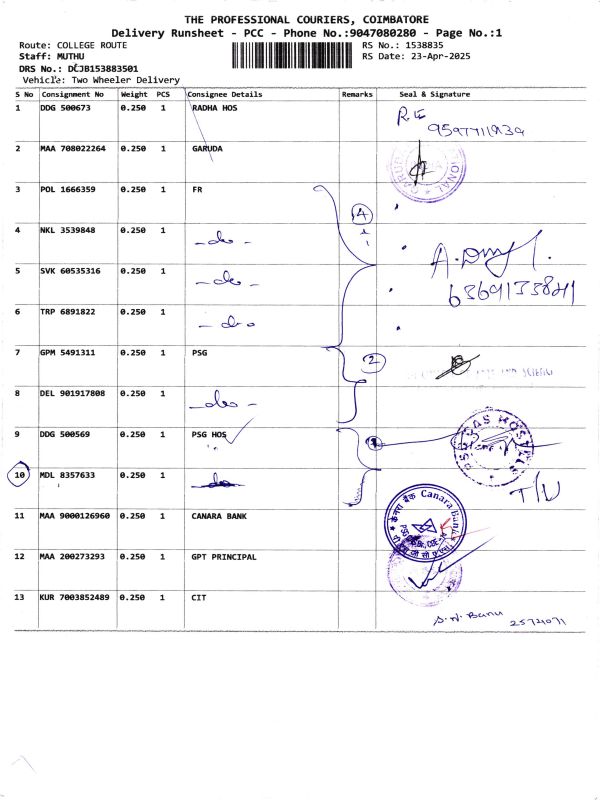 THE PROFESSIONAL COURIERS, COIMBATORE
Delivery Runsheet - PCC - Phone No.:9047080280 - Page No.:1
Route: COLLEGE ROUTE RS No.: 1538835
Staff: MUTHU RS Date: 23-Apr-2025
DRS No.: DCJB153883501
Vehicle: Two Wheeler Delivery
S No Consignment No Weight PCS Consignee Details Remarks Seal & Signature
1 DDG 500673 0.250 1 RADHA HOS
9597711939
2 MAA 708022264 0.250 1 GARUDA
3 POL 1666359 0.250 1 FR
4
4 NKL 3539848 0.250 1 - do -
5 SVK 60535316 0.250 1 - do -
6369133841
6 TRP 6891822 0.250 1 - do
7 GPM 5491311 0.250 1 PSG 2
AND SCIENCE
8 DEL 901917808 0.250 1 - do -
9 DDG 500569 0.250 1 PSG HOS
10 MDL 8357633 0.250 1
T/U
11 MAA 9000126960 0.250 1 CANARA BANK Canara Bank
12 MAA 200273293 0.250 1 GPT PRINCIPAL
13 KUR 7003852489 0.250 1 CIT
S.N. Banu